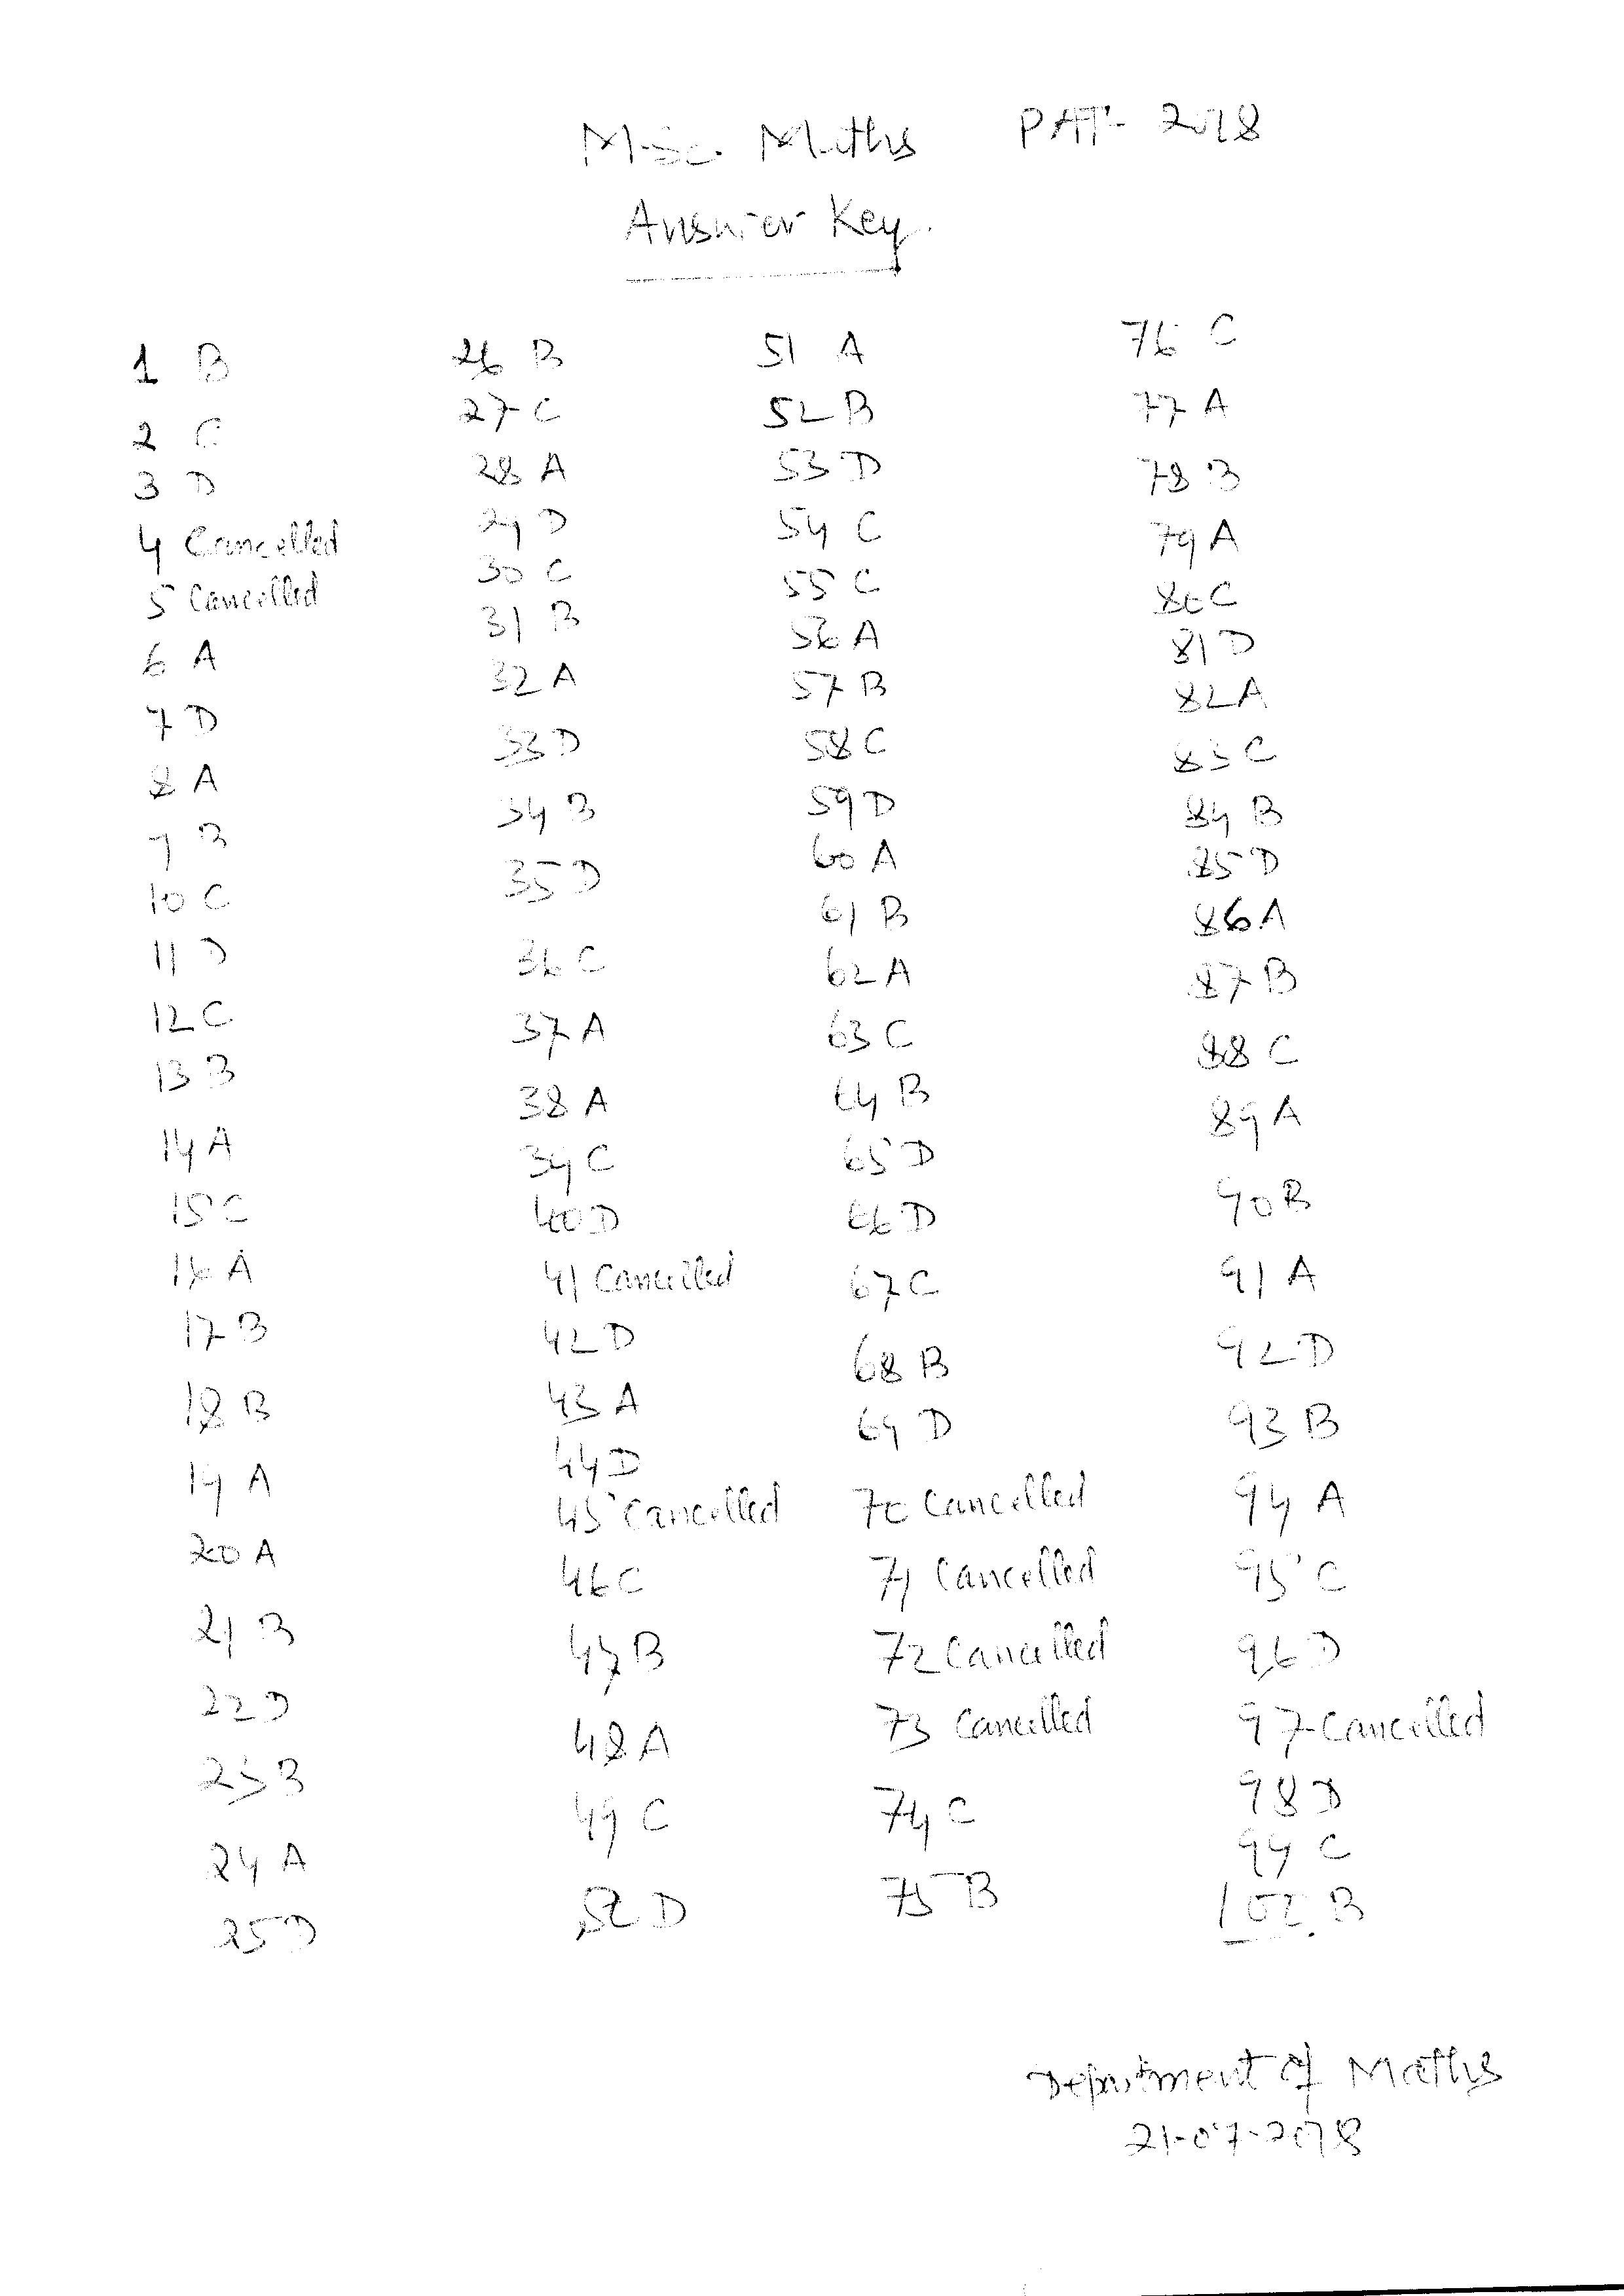 M.Sc. Maths PAT- 2018
Answer Key.
1 B
2 C
3 D
4 Cancelled
5 Cancelled
6 A
7 D
8 A
9 B
10 C
11 D
12 C
13 B
14 A
15 C
16 A
17 B
18 B
19 A
20 A
21 B
22 D
23 B
24 A
25 D
26 B
27 C
28 A
29 D
30 C
31 B
32 A
33 D
34 B
35 D
36 C
37 A
38 A
39 C
40 D
41 Cancelled
42 D
43 A
44 D
45 Cancelled
46 C
47 B
48 A
49 C
50 D
51 A
52 B
53 D
54 C
55 C
56 A
57 B
58 C
59 D
60 A
61 B
62 A
63 C
64 B
65 D
66 D
67 C
68 B
69 D
70 Cancelled
71 Cancelled
72 Cancelled
73 Cancelled
74 C
75 B
76 C
77 A
78 B
79 A
80 C
81 D
82 A
83 C
84 B
85 D
86 A
87 B
88 C
89 A
90 B
91 A
92 D
93 B
94 A
95 C
96 D
97 Cancelled
98 D
99 C
100. B
Department of Maths
21-07-2018